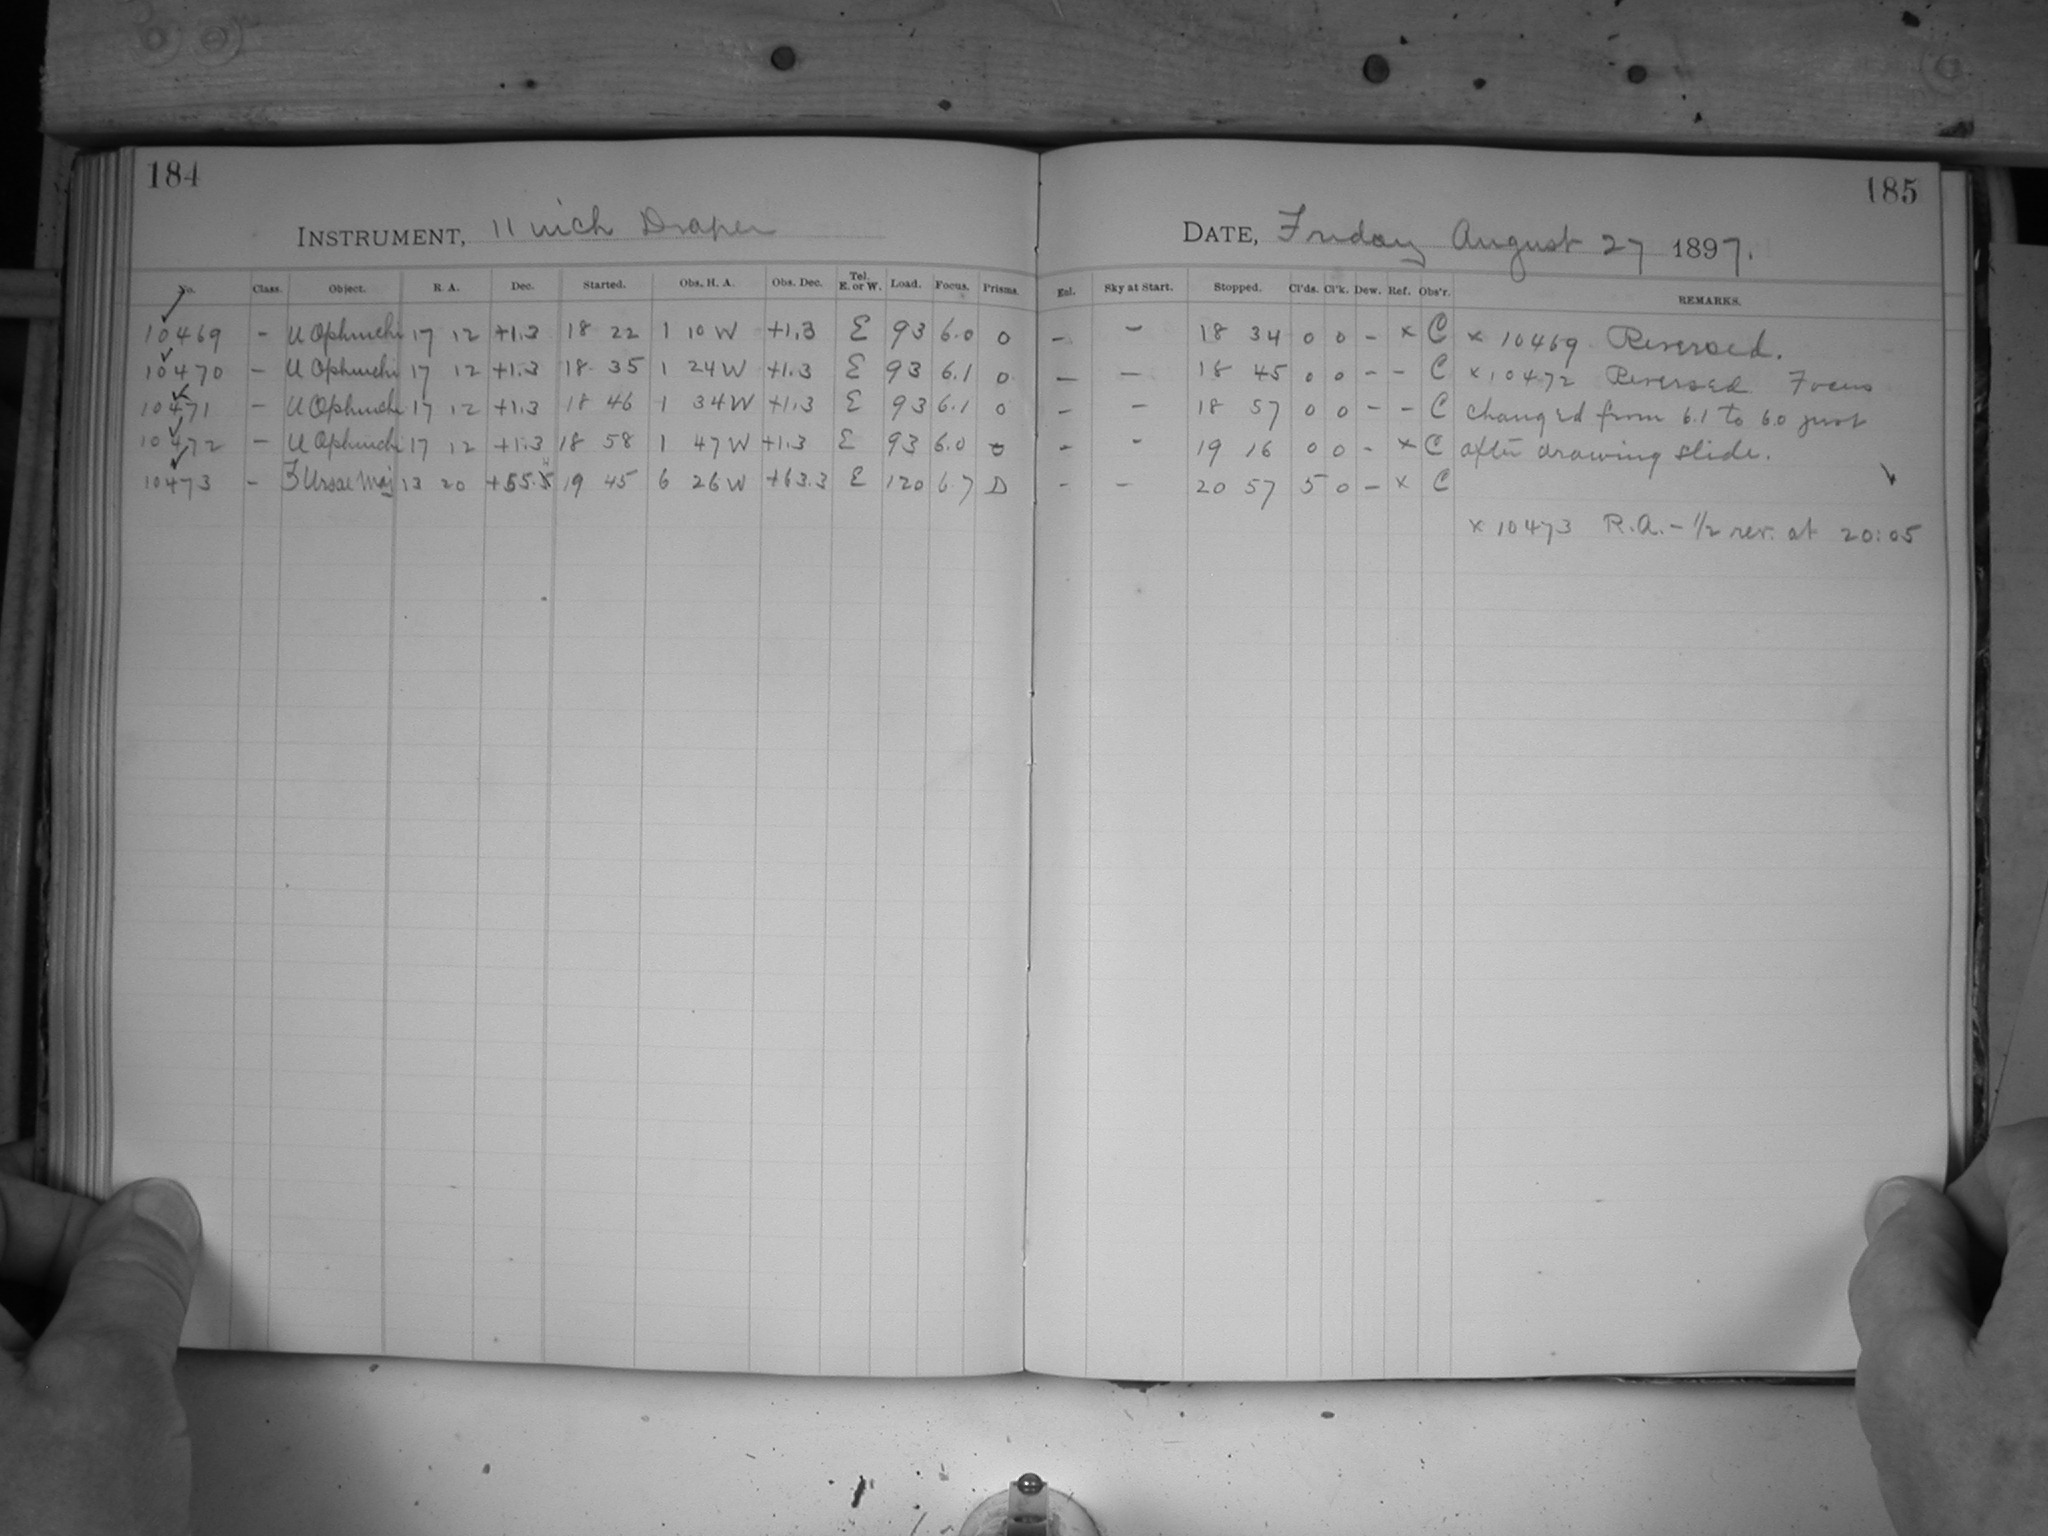 184
INSTRUMENT, 11 inch Draper
No. Class. Object. R. A. Dec. Started. Obs. H. A. Obs. Dec. Tel. E. or W. Load. Focus. Prisms.
10469 - U Ophiuchi 17 12 +1.3 18 22 1 10 W +1.3 E 93 6.0 0
10470 - U Ophiuchi 17 12 +1.3 18 35 1 24 W +1.3 E 93 6.1 0
10471 - U Ophiuchi 17 12 +1.3 18 46 1 34 W +1.3 E 93 6.1 0
10472 - U Ophiuchi 17 12 +1.3 18 58 1 47 W +1.3 E 93 6.0 0
10473 - Ursae Maj 13 20 +55.5 19 45 6 26 W +63.3 E 120 6.7 D
185
DATE, Friday August 27 1897.
Enl. Sky at Start. Stopped. Cl'ds. Cl'k. Dew. Ref. Obs'r. REMARKS.
- - 18 34 0 0 - x C x 10469 Reversed.
- - 18 45 0 0 - - C x 10472 Reversed Focus
- - 18 57 0 0 - - C changed from 6.1 to 6.0 just
- - 19 16 0 0 - x C after drawing slide.
- - 20 57 5 0 - x C
x 10473 R.A. - 1/2 rev. at 20:05